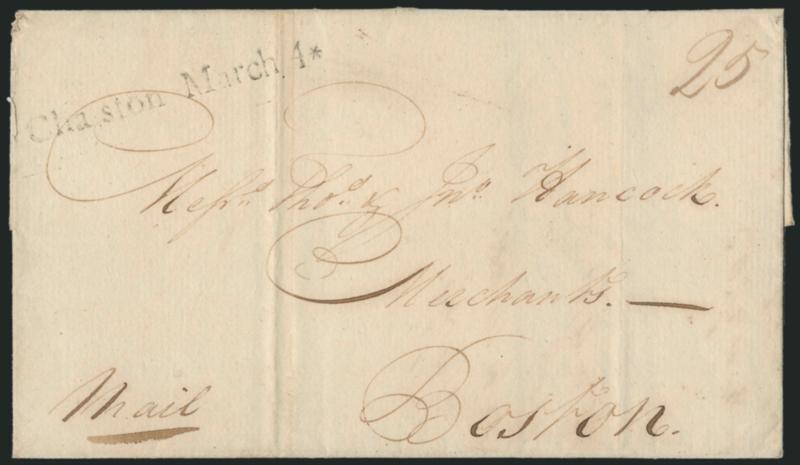 Chaston March 4*
25
Messrs. Thos. & Jno. Hancock.
Merchants.
Mail
Boston.